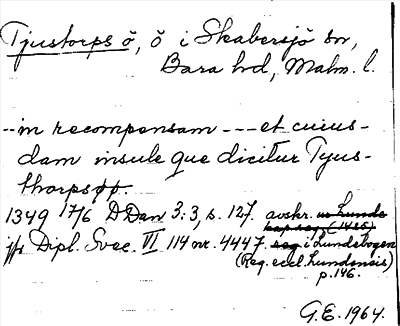 Tjustorps ö, ö i Skabersjö sn,
Bara hd, Malm. l.
--in recompensam --- et cuius-
dam insule que dicitur Tyus-
thorps
1349 17/6 DDan 3:3, s. 127. avskr. us Lunds
kap reg (1485)
jfr Dipl. Svec. VI 114 nr. 4447. reg i Lundebogen
(Reg. eccl. Lundensis)
p. 146.
G.E. 1964.